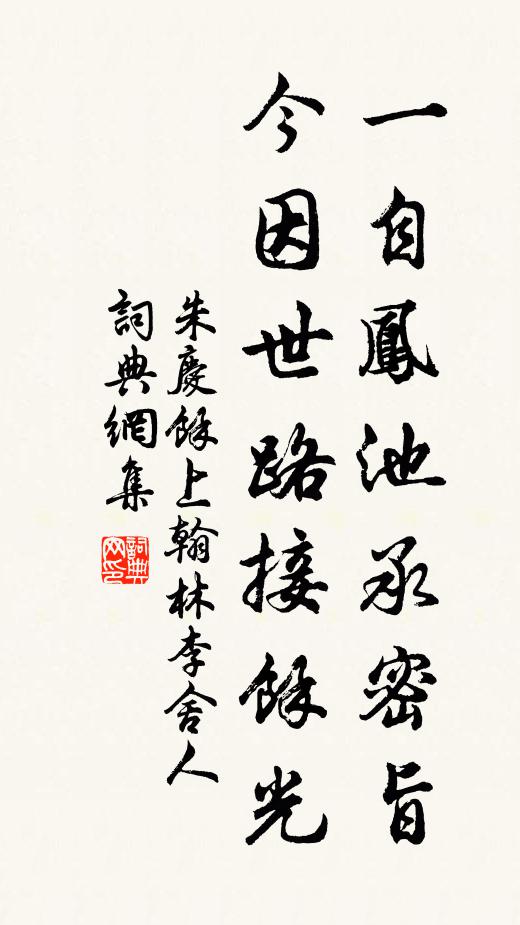 一自鳳池承密旨
今因世路接餘光
朱慶餘上翰林李舍人
詞典網集
詞典網印